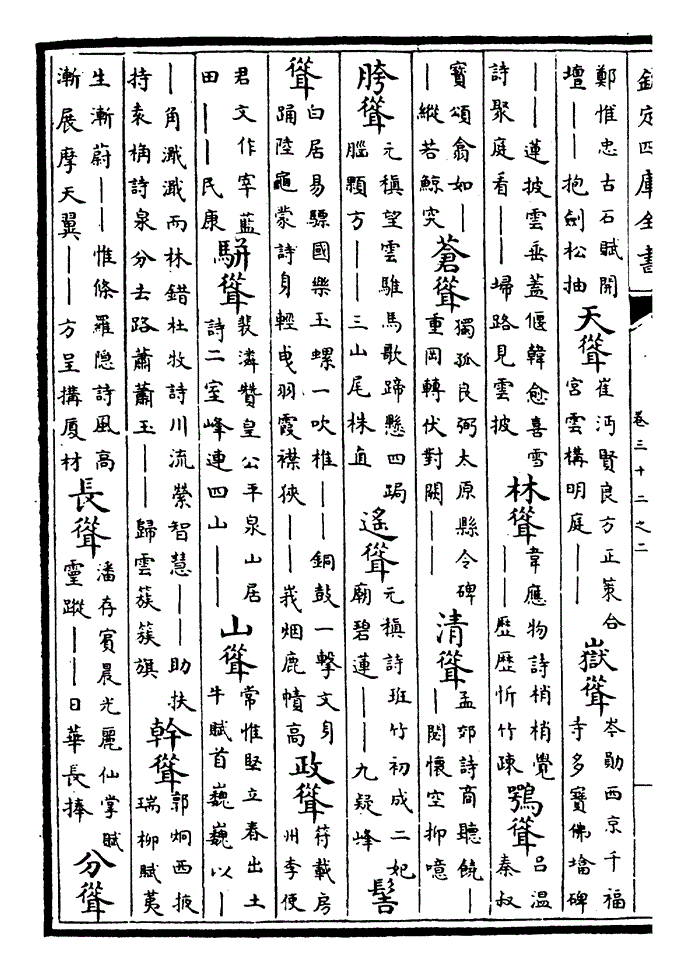 欽定四庫全書
卷三十二之二
鄭惟忠古石賦開
壇丨丨抱劍松抽
天聳
崔沔賢良方正策合
宮雲構明庭丨丨
嶽聳
岑勛西京千福
寺多寶佛塔碑
丨丨蓮披雲垂蓋偃韓愈喜雪
詩聚庭看丨丨埽路見雲披
林聳
韋應物詩梢梢覺
丨丨歷歷忻竹疎
鶚聳
呂温
秦叔
寳頌翕如丨
丨縱若鯨突
蒼聳
獨孤良弼太原縣令碑
重岡轉伏對闕丨丨
清聳
孟郊詩商聽饒丨
丨閟懷空抑噫
胯聳
元稹望雲騅馬歌蹄懸四跼
腦顆方丨丨三山尾株直
遥聳
元稹詩班竹初成二妃
廟碧蓮丨丨九疑峰
髻
聳
白居易驃國樂玉螺一吹椎丨丨銅鼓一擊文身
踊陸龜蒙詩身輕曵羽霞襟狹丨丨峩烟鹿幘高
政聳
符載房
州李使
君文作宰藍
田丨丨民康
駢聳
裴潾贊皇公平泉山居
詩二室峰連四山丨丨
山聳
常惟堅立春出土
牛賦首巍巍以丨
丨角濈濈而林錯杜牧詩川流縈智慧丨丨助扶
持袁桷詩泉分去路蕭蕭玉丨丨歸雲蔟蔟旗
幹聳
郭炯西掖
瑞柳賦荑
生漸蔚丨丨惟條羅隐詩風高
漸展摩天翼丨丨方呈搆厦材
長聳
潘存實晨光麗仙掌賦
靈蹤丨丨日華長捧
分聳